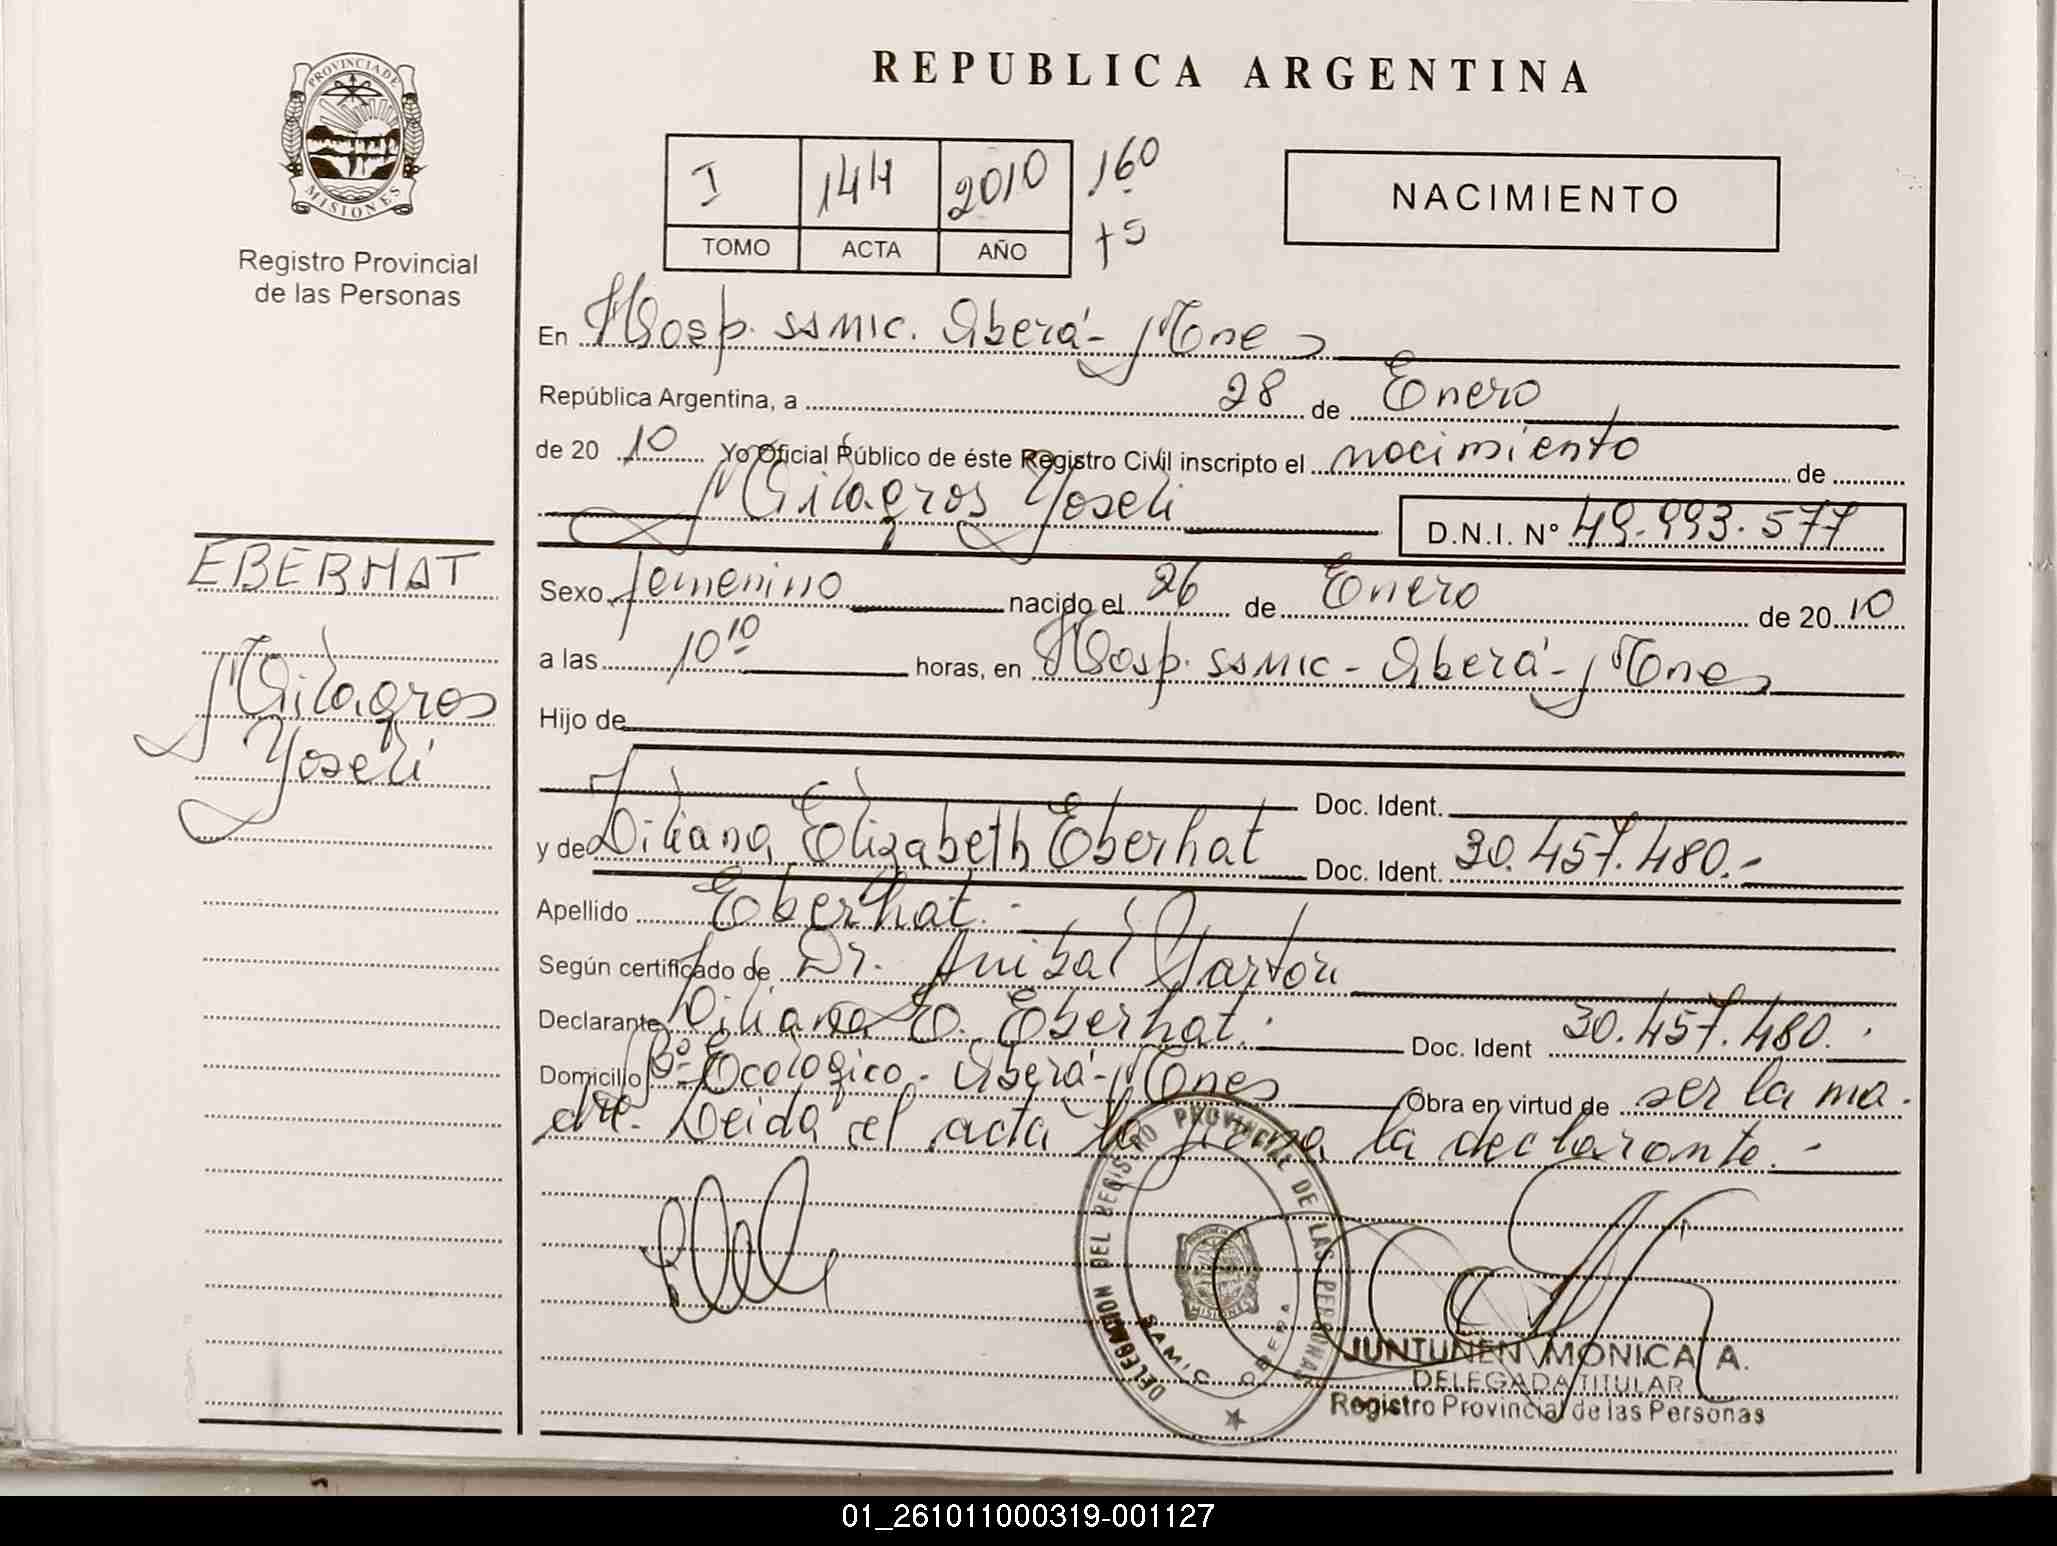 REPUBLICA ARGENTINA
PROVINCIA DE MISIONES
Registro Provincial
de las Personas
I 144 2010 160
TOMO ACTA AÑO +5
NACIMIENTO
En Hosp. SSMIC. Oberá - Mnes
República Argentina, a 28 de Enero
de 20 10 Yo Oficial Público de éste Registro Civil inscripto el nacimiento de
Milagros Yoseli D.N.I. Nº 49.993.577
EBERHAT
Milagros
Yoseli
Sexo femenino nacido el 26 de Enero de 20 10
a las 10 10 horas, en Hosp. SSMIC - Oberá - Mnes
Hijo de
Doc. Ident.
y de Liliana Elizabeth Eberhat Doc. Ident. 30.457.480.-
Apellido Eberhat.-
Según certificado de Dr. Anibal
Declarante Liliana E. Eberhat. Doc. Ident 30.457.480.
Domicilio Bº Ecológico - Oberá - Mnes Obra en virtud de ser la ma-
dre. Leida el acta la firma la declarante.-
DELEGACION DEL REGISTRO PROVINCIAL DE LAS PERSONAS
MISIONES
SAMIC OBERA
JUNTUNEN MONICA A.
DELEGADA TITULAR
Registro Provincial de las Personas
01_261011000319-001127